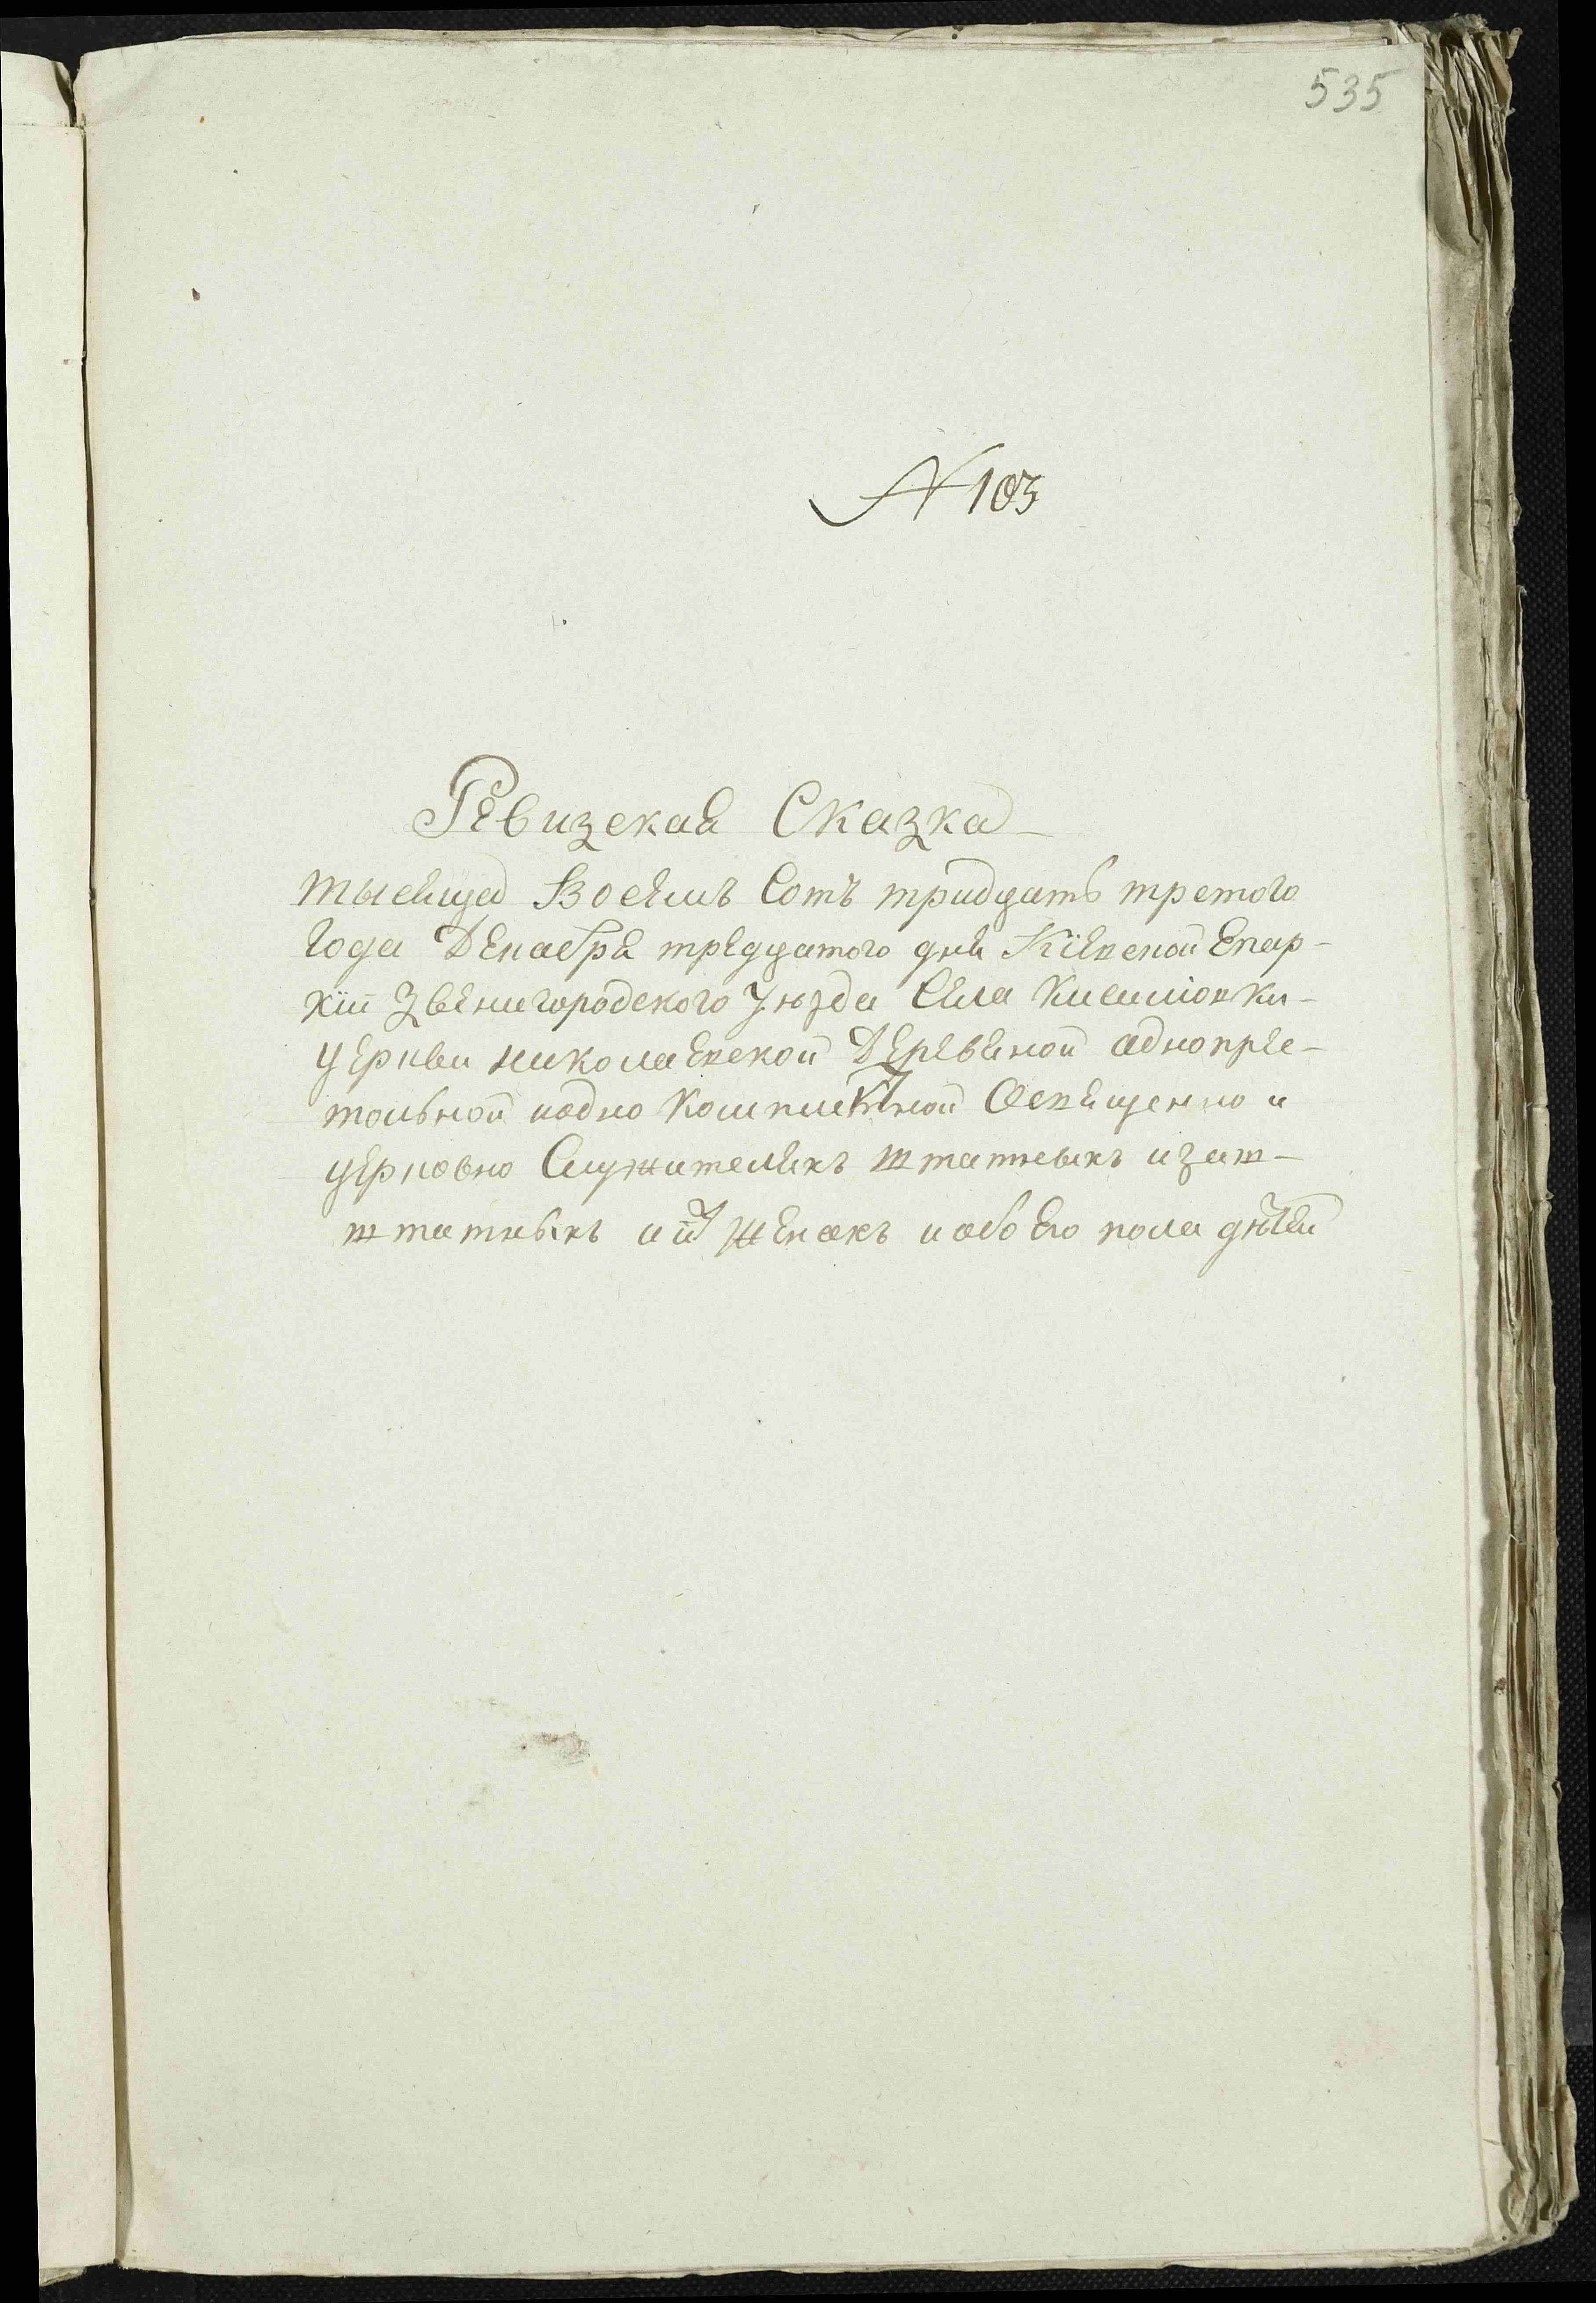 535
N 103
Ревизская Сказка
тысяща Восемъ Сотъ тридцать третого
года Декабря тредцатого дня Кіевской Епар-
хіи Звенигородского Уѣзда Села Кислюовки-
церкви николаевской Деревяной аднопрес-
тольной иодно Комплектной Освященно и
церковно Служителяхъ штатныхъ изаш-
штатныхъ и иⷯ женахъ иобоего пола дѣтей